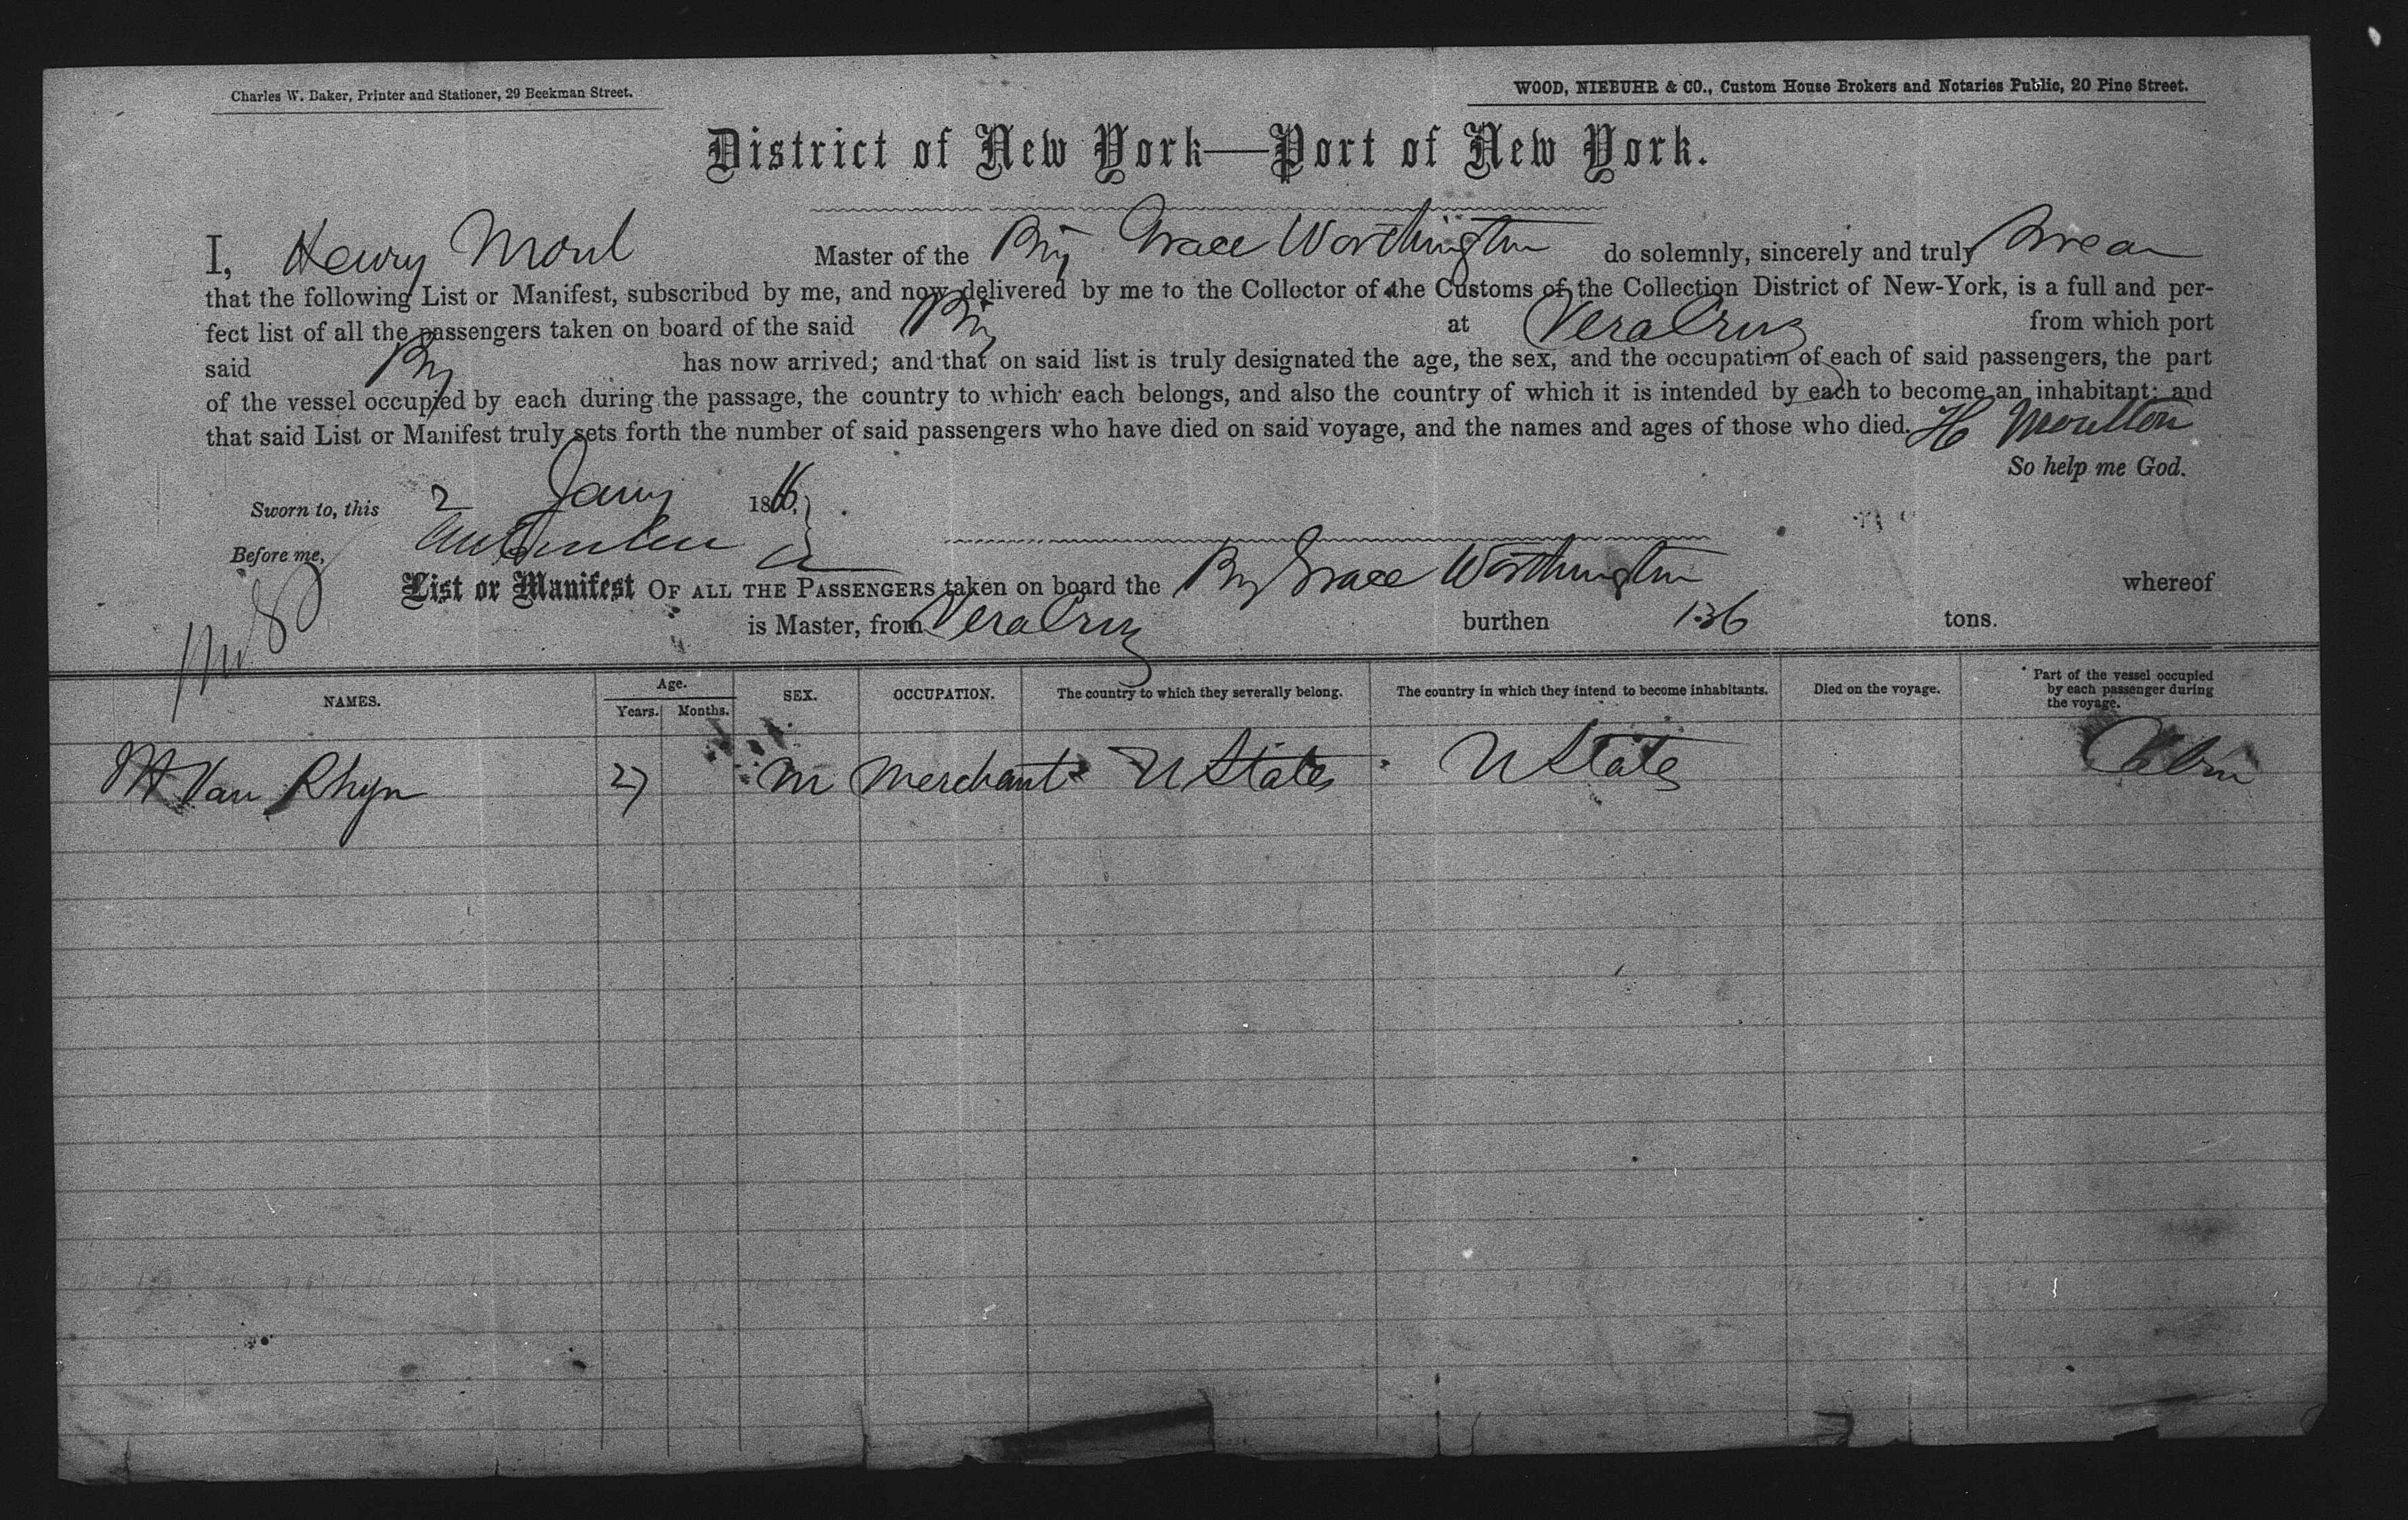 Charles W. Baker, Printer and Stationer, 29 Beekman Street.
WOOD, NIEBUHR & CO., Custom House Brokers and Notaries Public, 20 Pine Street.
District of New York—Port of New York.
I, Henry Moul Master of the Brig Grace Worthington do solemnly, sincerely and truly Swear
that the following List or Manifest, subscribed by me, and now delivered by me to the Collector of the Customs of the Collection District of New-York, is a full and per-
fect list of all the passengers taken on board of the said Brig at Vera Cruz from which port
said Brig has now arrived; and that on said list is truly designated the age, the sex, and the occupation of each of said passengers, the part
of the vessel occupied by each during the passage, the country to which each belongs, and also the country of which it is intended by each to become an inhabitant; and
that said List or Manifest truly sets forth the number of said passengers who have died on said voyage, and the names and ages of those who died. H Moulton
So help me God.
Sworn to, this 2 Jany 186
Before me,
List or Manifest OF ALL THE PASSENGERS taken on board the Brig Grace Worthington whereof
is Master, from Vera Cruz burthen 136 tons.
NAMES. Age. Years. Months. SEX. OCCUPATION. The country to which they severally belong. The country in which they intend to become inhabitants. Died on the voyage. Part of the vessel occupied by each passenger during the voyage.
Van Rhyn 27 M Merchant U States U States Cabin